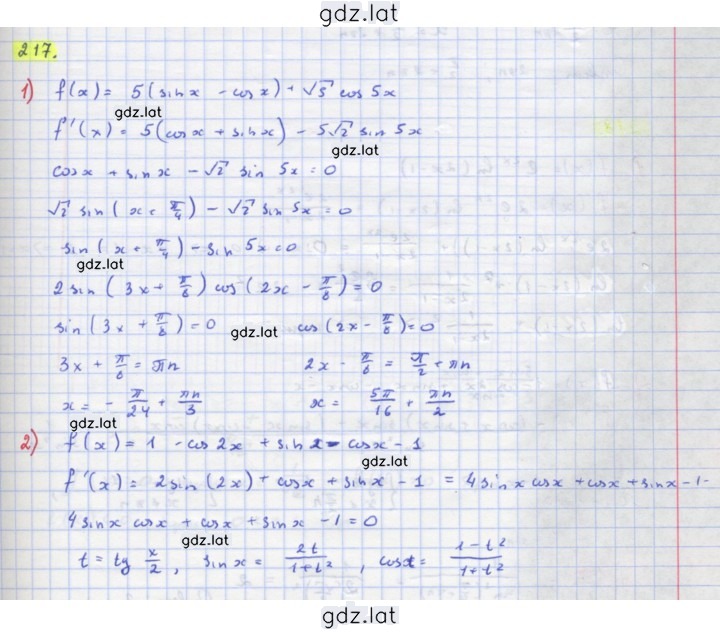 gdz.lat
217.
1) f(x) = 5(sin x - cos x) + √5 cos 5x
gdz.lat
f'(x) = 5(cos x + sin x) - 5√2 sin 5x
gdz.lat
cos x + sin x - √2 sin 5x = 0
√2 sin(x + π/4) - √2 sin 5x = 0
sin(x + π/4) - sin 5x = 0
gdz.lat
2 sin(3x + π/8) cos(2x - π/8) = 0
sin(3x + π/8) = 0 gdz.lat cos(2x - π/8) = 0
3x + π/8 = πn 2x - π/8 = π/2 + πn
x = - π/24 + πn/3 x = 5π/16 + πn/2
gdz.lat
2) f(x) = 1 - cos 2x + sin x - cos x - 1
gdz.lat
f'(x) = 2 sin(2x) + cos x + sin x - 1 = 4 sin x cos x + cos x + sin x - 1 -
4 sin x cos x + cos x + sin x - 1 = 0
gdz.lat
t = tg x/2, sin x = 2t/1+t², cos x = 1-t²/1+t²
gdz.lat